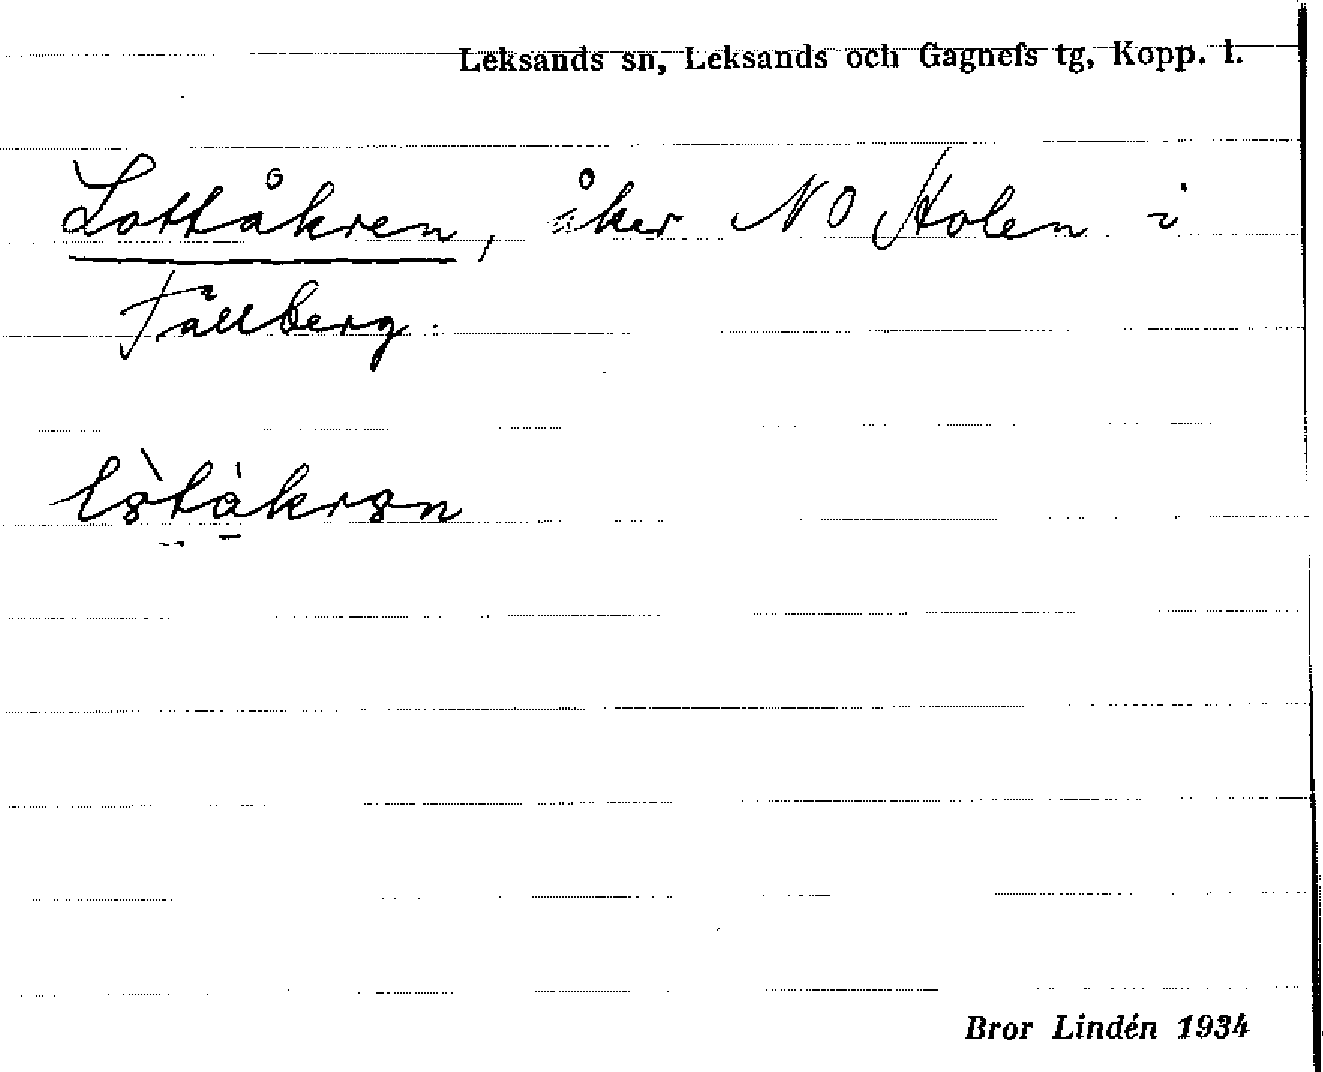 Leksands sn, Leksands och Gagnefs tg, Kopp. l.
Lottåkren, åker NO Holen i
Tällberg.
Bror Lindén 1934